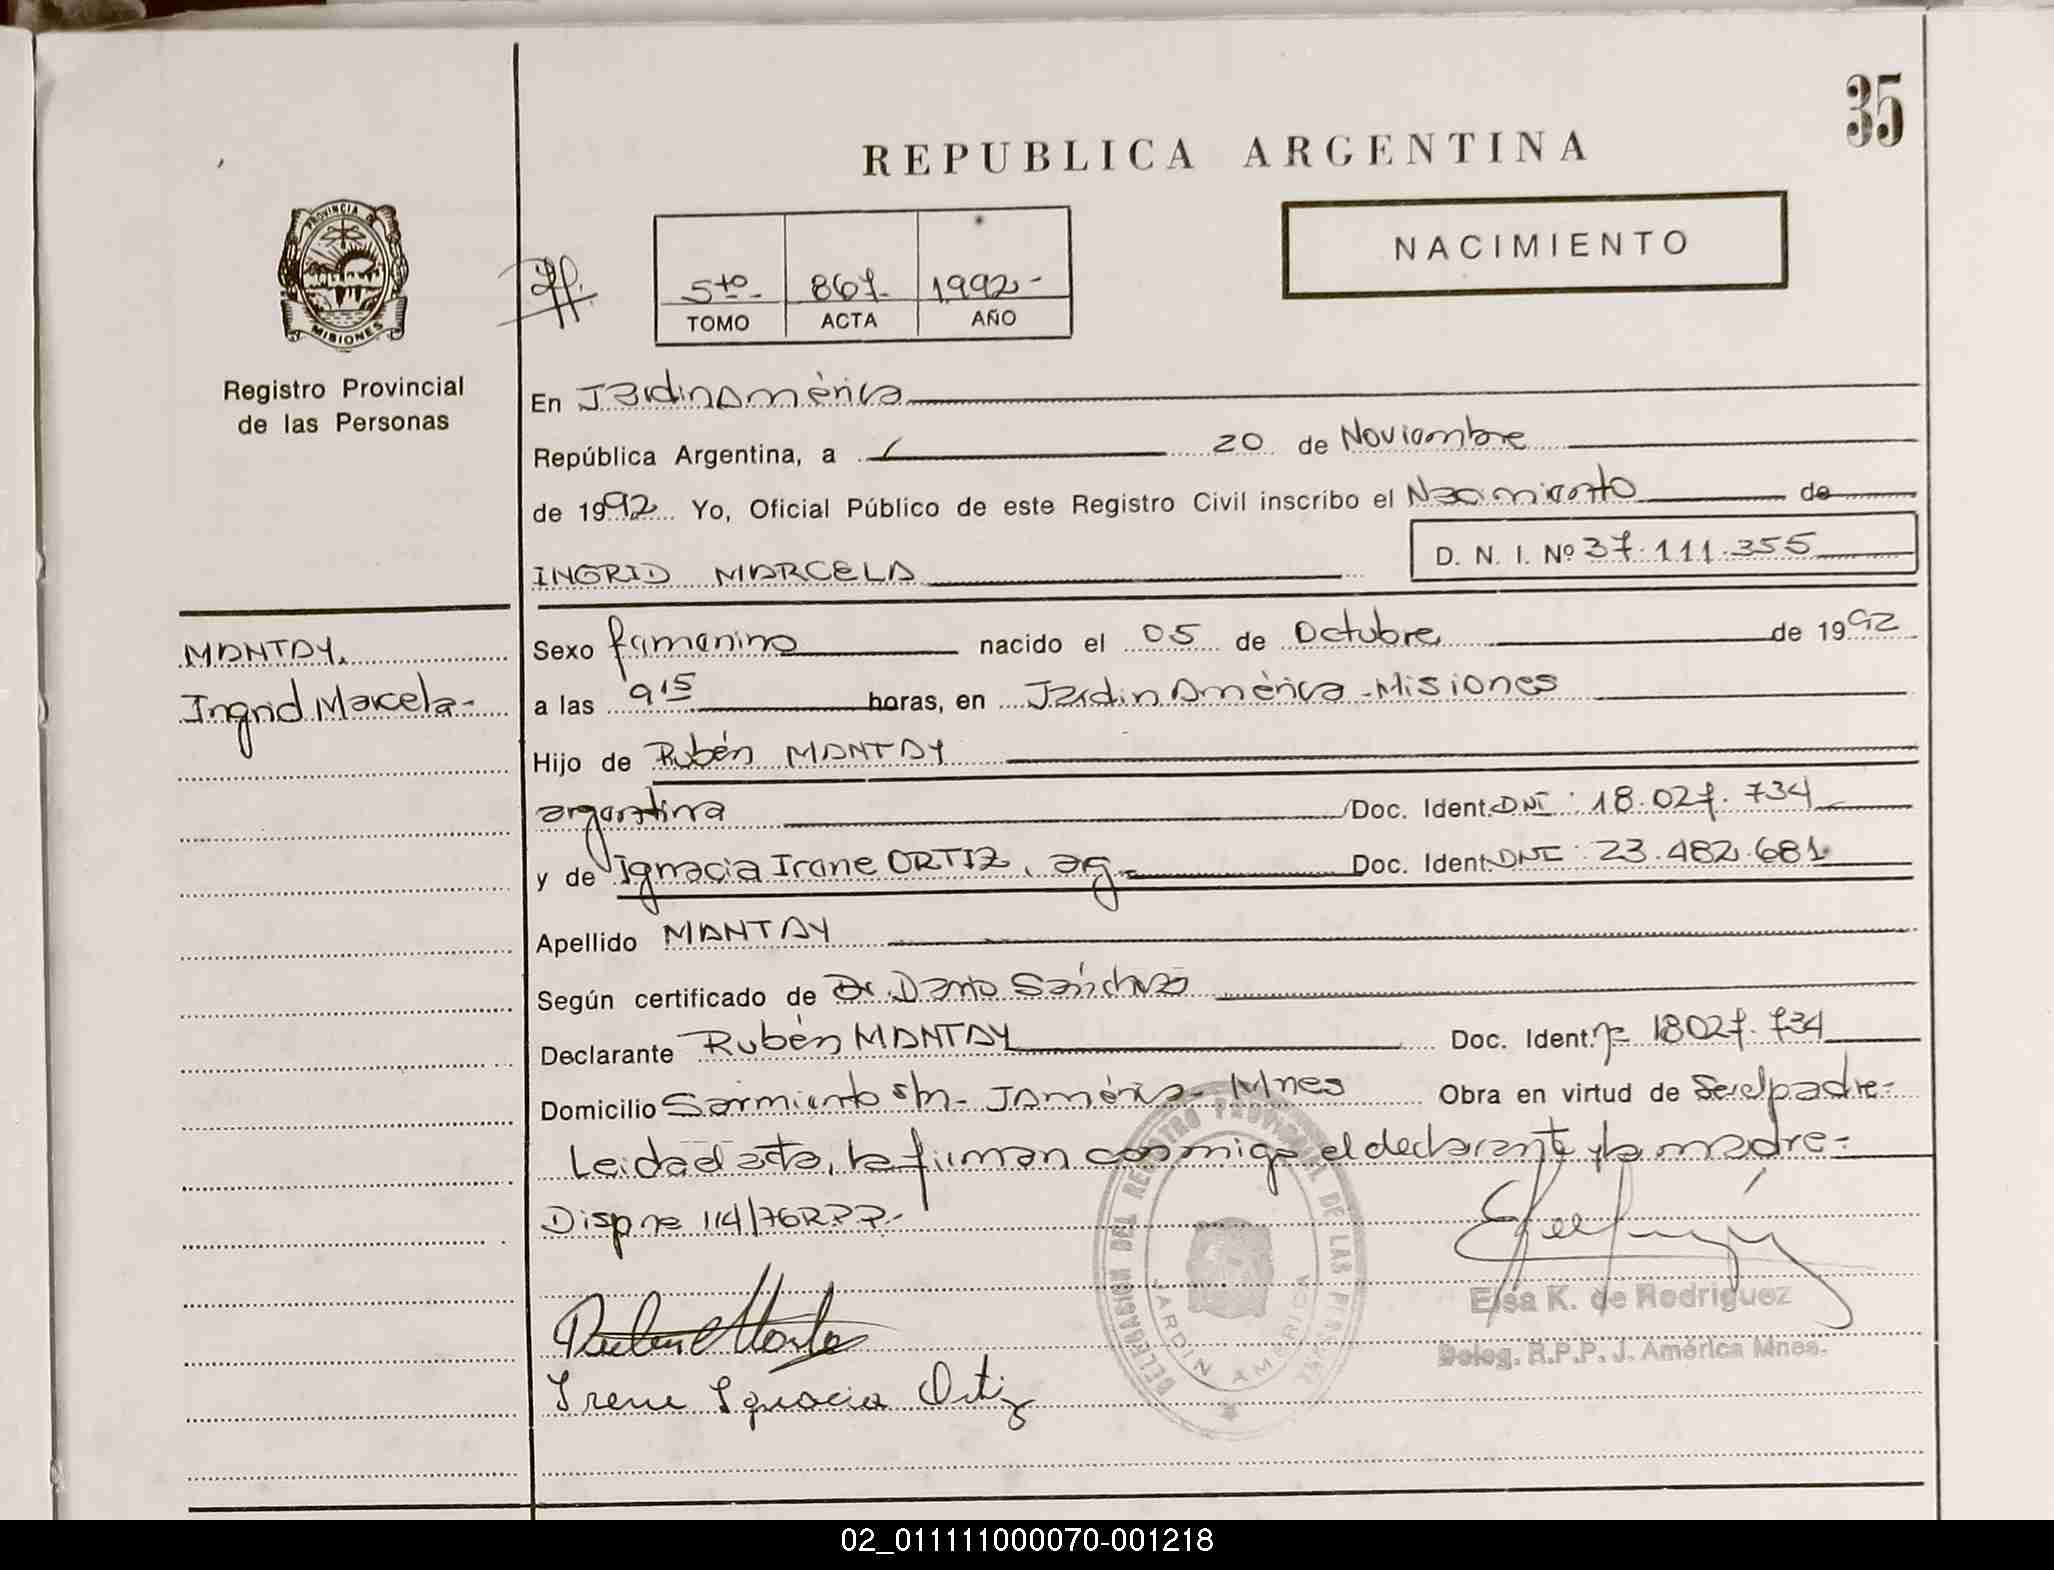 35
REPUBLICA ARGENTINA
NACIMIENTO
PROVINCIA DE
MISIONES
Registro Provincial
de las Personas
5to- 867- 1.992-
TOMO ACTA AÑO
En Jardín América
República Argentina, a 20 de Noviembre
de 1992 Yo, Oficial Público de este Registro Civil inscribo el Nacimiento de
INGRID MARCELA D. N. I. Nº 37.111.355
MANTAY,
Ingrid Marcela-
Sexo femenino nacido el 05 de Octubre de 1992
a las 9 15 horas, en Jardín América - Misiones
Hijo de Rubén MANTAY
argentina Doc. Ident. DNI: 18.027.734
y de Ignacia Irene ORTIZ, arg- Doc. Ident. DNI: 23.482.681
Apellido MANTAY
Según certificado de Dr. Darío Sánchez
Declarante Rubén MANTAY Doc. Ident. 18027.734
Domicilio Sarmiento s/n- J América- Mnes Obra en virtud de Ser el padre-
Leida el acta, la firman conmigo el declarante y la madre-
Disp ne 114/76 R.P.P.-
DELEGACION DEL REGISTRO PROVINCIAL DE LAS PERSONAS
JARDIN AMERICA
Elsa K. de Rodriguez
Deleg. R.P.P. J. América Mnes.
Irene Ignacia Ortiz
02_011111000070-001218